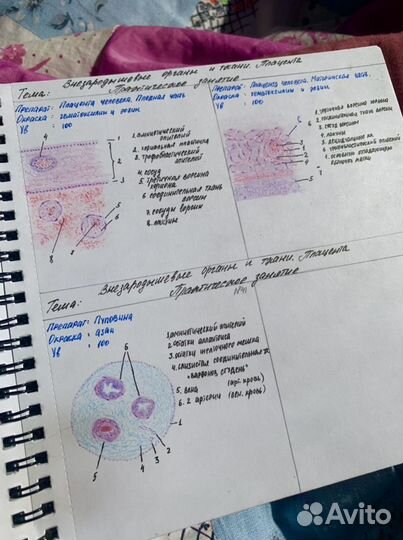 Внезародышевые органы и ткани. Плацента
Тема: Практическое занятие
Препарат: Плацента человека. Плодная часть
Окраска: гематоксилин и эозин
Ув : 100
1. амниотический эпителий
2. хориальная пластинка
3. трофобластический эпителий
4. сосуд
5. третичная ворсина хориона
6. соединительная ткань ворсин
7. сосуды ворсин
8.
Препарат: Плацента человека. Материнская часть.
Окраска : гематоксилин и эозин.
Ув : 100
1.
2. соединительная ткань ворсин
3. сосуд ворсины
4. лакуны
5. децидуальные кл.
6.
7.
Внезародышевые органы и ткани. Плацента
Тема: Практическое занятие
Препарат: Пуповина
Окраска : азан
Ув : 100
1. амниотический эпителий
2. остатки аллантоиса
3. остатки желточного мешка
4. слизистая соединительная тк
"вартонов студень"
5. вена (арт. кровь)
6. 2 артерии (вен. кровь)
Avito